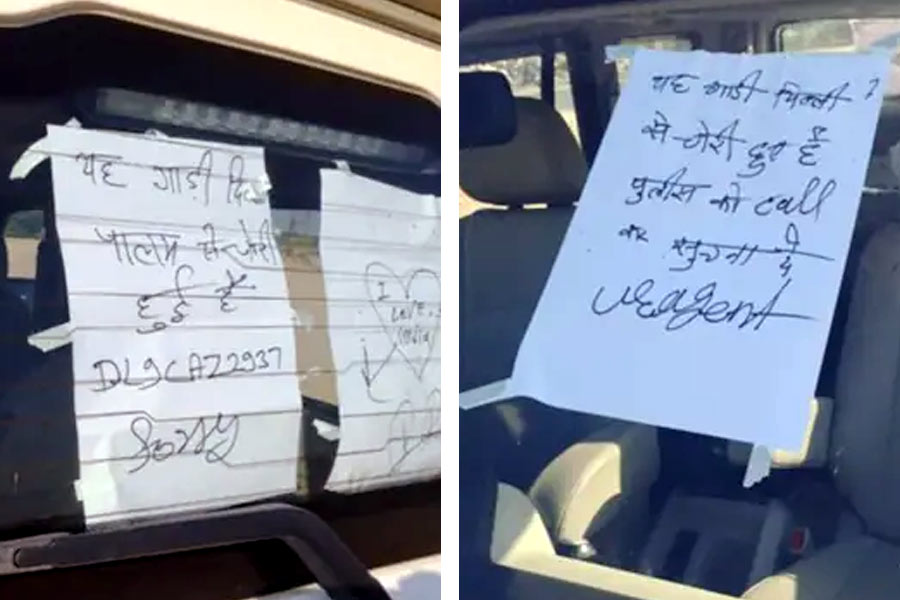 यह गाडी
पालम से चोरी
हुई है
DL9CAZ2937
Sorry
I
LOVE
यह गाडी दिल्ली
से चोरी हुई है
पुलीस को call
कर सुचना दे
Uregent